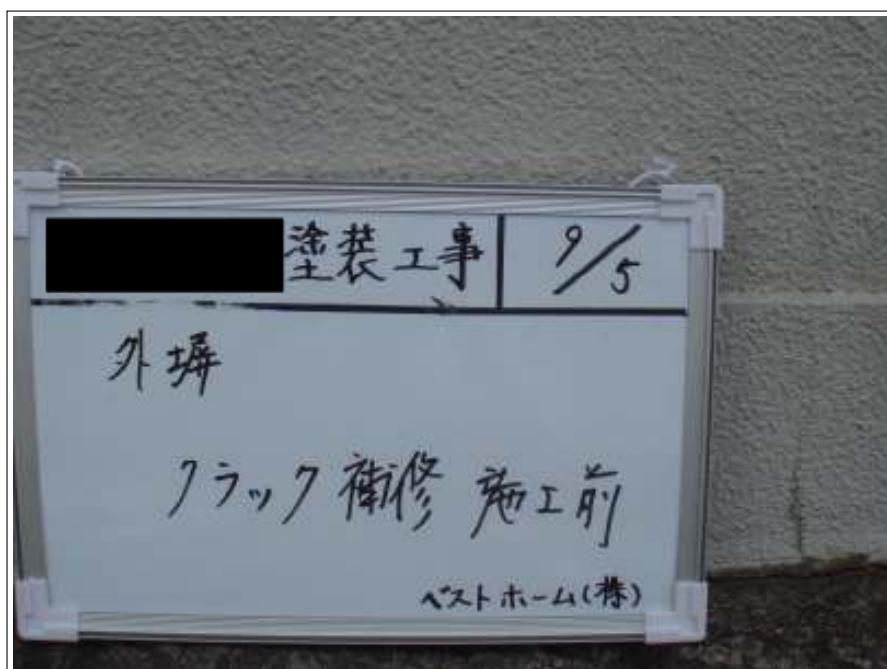 塗装工事 9/5
外塀
クラック補修 施工前
ベストホーム(株)